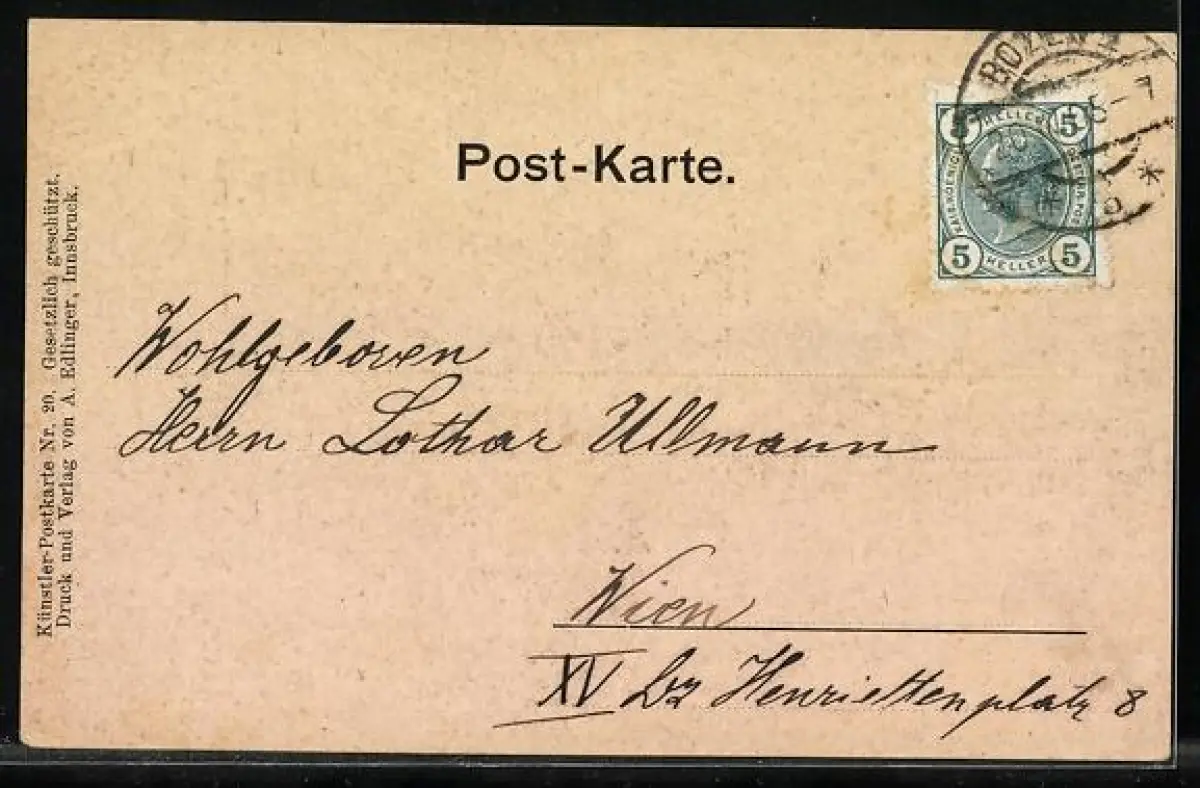 Post-Karte.
BOZEN 2
5-7
5 HELLER 5
5 HELLER 5
Wohlgeboren
Herrn Lothar Ullmann
Wien
XV Bz Henriettenplatz 8
Künstler-Postkarte Nr. 20. Gesetzlich geschützt.
Druck und Verlag von A. Edlinger, Innsbruck.